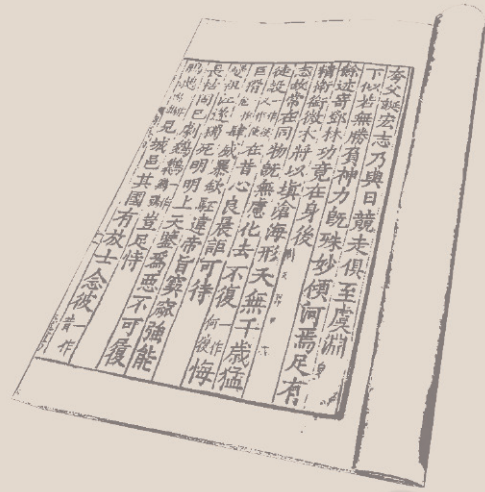 夸父誕宏志乃與日競走俱至虞淵
下似若無勝負神力既殊妙傾河焉足有
餘迹寄鄧林功竟在身後
精衛銜微木將以填滄海形夭無千歲猛
志故常在同物既無慮化去不復一作何復悔
徒設在昔心良晨詎可待
巨猾肆威暴欽駓違帝旨窫窳強能
變祖江遂獨死明明上天鑒為惡不可履
長枯固已劇鵕鶚豈足恃
見城邑其國有放士念彼一作